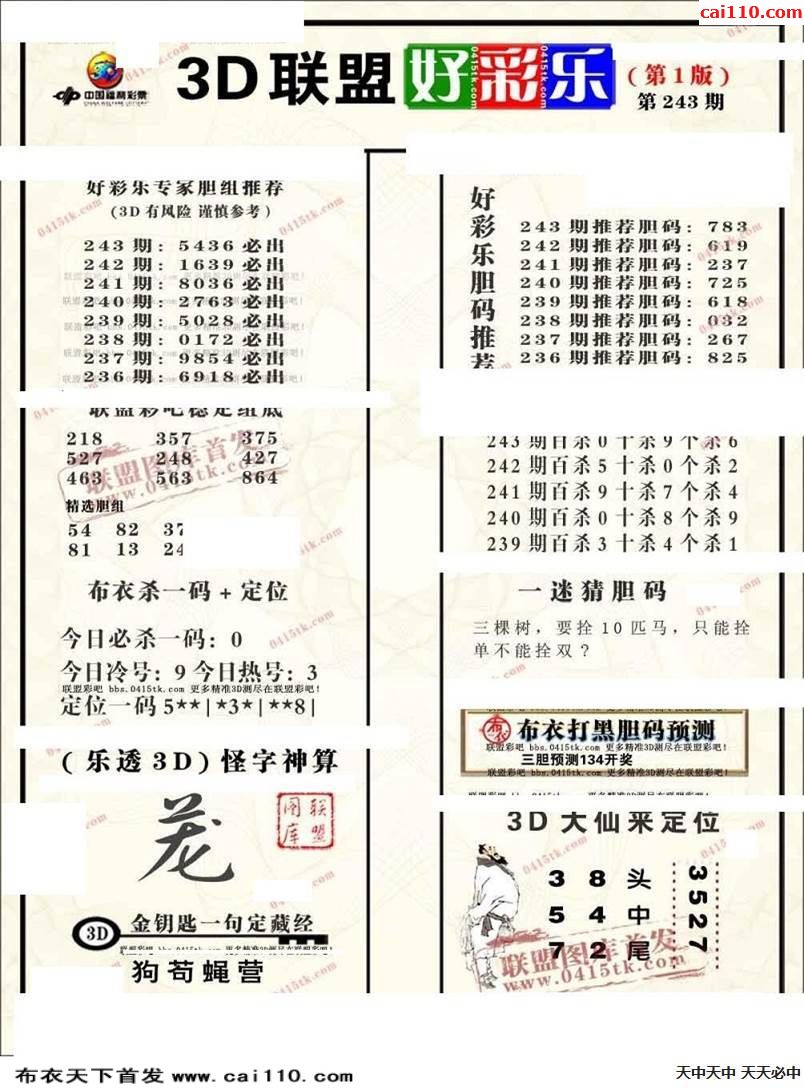 cai110.com
中国福利彩票
CHINA WELFARE LOTTERY
3D联盟好彩乐
(第1版)
第243期
好彩乐专家胆组推荐
(3D有风险 谨慎参考)
243期: 5436必出
242期: 1639必出
241期: 8036必出
240期: 2763必出
239期: 5028必出
238期: 0172必出
237期: 9854必出
236期: 6918必出
联盟彩吧稳定组底
218 357 375
527 248 427
463 563 864
精选胆组
54 82 37
81 13 24
布衣杀一码+定位
今日必杀一码: 0
今日冷号: 9 今日热号: 3
联盟彩吧 bbs.0415tk.com 更多精准3D测尽在联盟彩吧!
定位一码5**|*3*|**8|
(乐透3D)怪字神算
联盟图库
3D 金钥匙一句定藏经
狗苟蝇营
好彩乐胆码推荐
243期推荐胆码: 783
242期推荐胆码: 619
241期推荐胆码: 237
240期推荐胆码: 725
239期推荐胆码: 618
238期推荐胆码: 032
237期推荐胆码: 267
236期推荐胆码: 825
243期百杀0十杀9个杀6
242期百杀5十杀0个杀2
241期百杀9十杀7个杀4
240期百杀0十杀8个杀9
239期百杀3十杀4个杀1
一迷猜胆码
三棵树，要拴10匹马，只能拴
单不能拴双？
布衣 布衣打黑胆码预测
联盟彩吧 bbs.0415tk.com 更多精准3D测尽在联盟彩吧!
三胆预测134开奖
联盟彩吧 bbs.0415tk.com 更多精准3D测尽在联盟彩吧!
3D大仙来定位
3 8 头
5 4 中
7 2 尾
3527
联盟图库首发
www.0415tk.com
布衣天下首发www.cai110.com
天中天中 天天必中